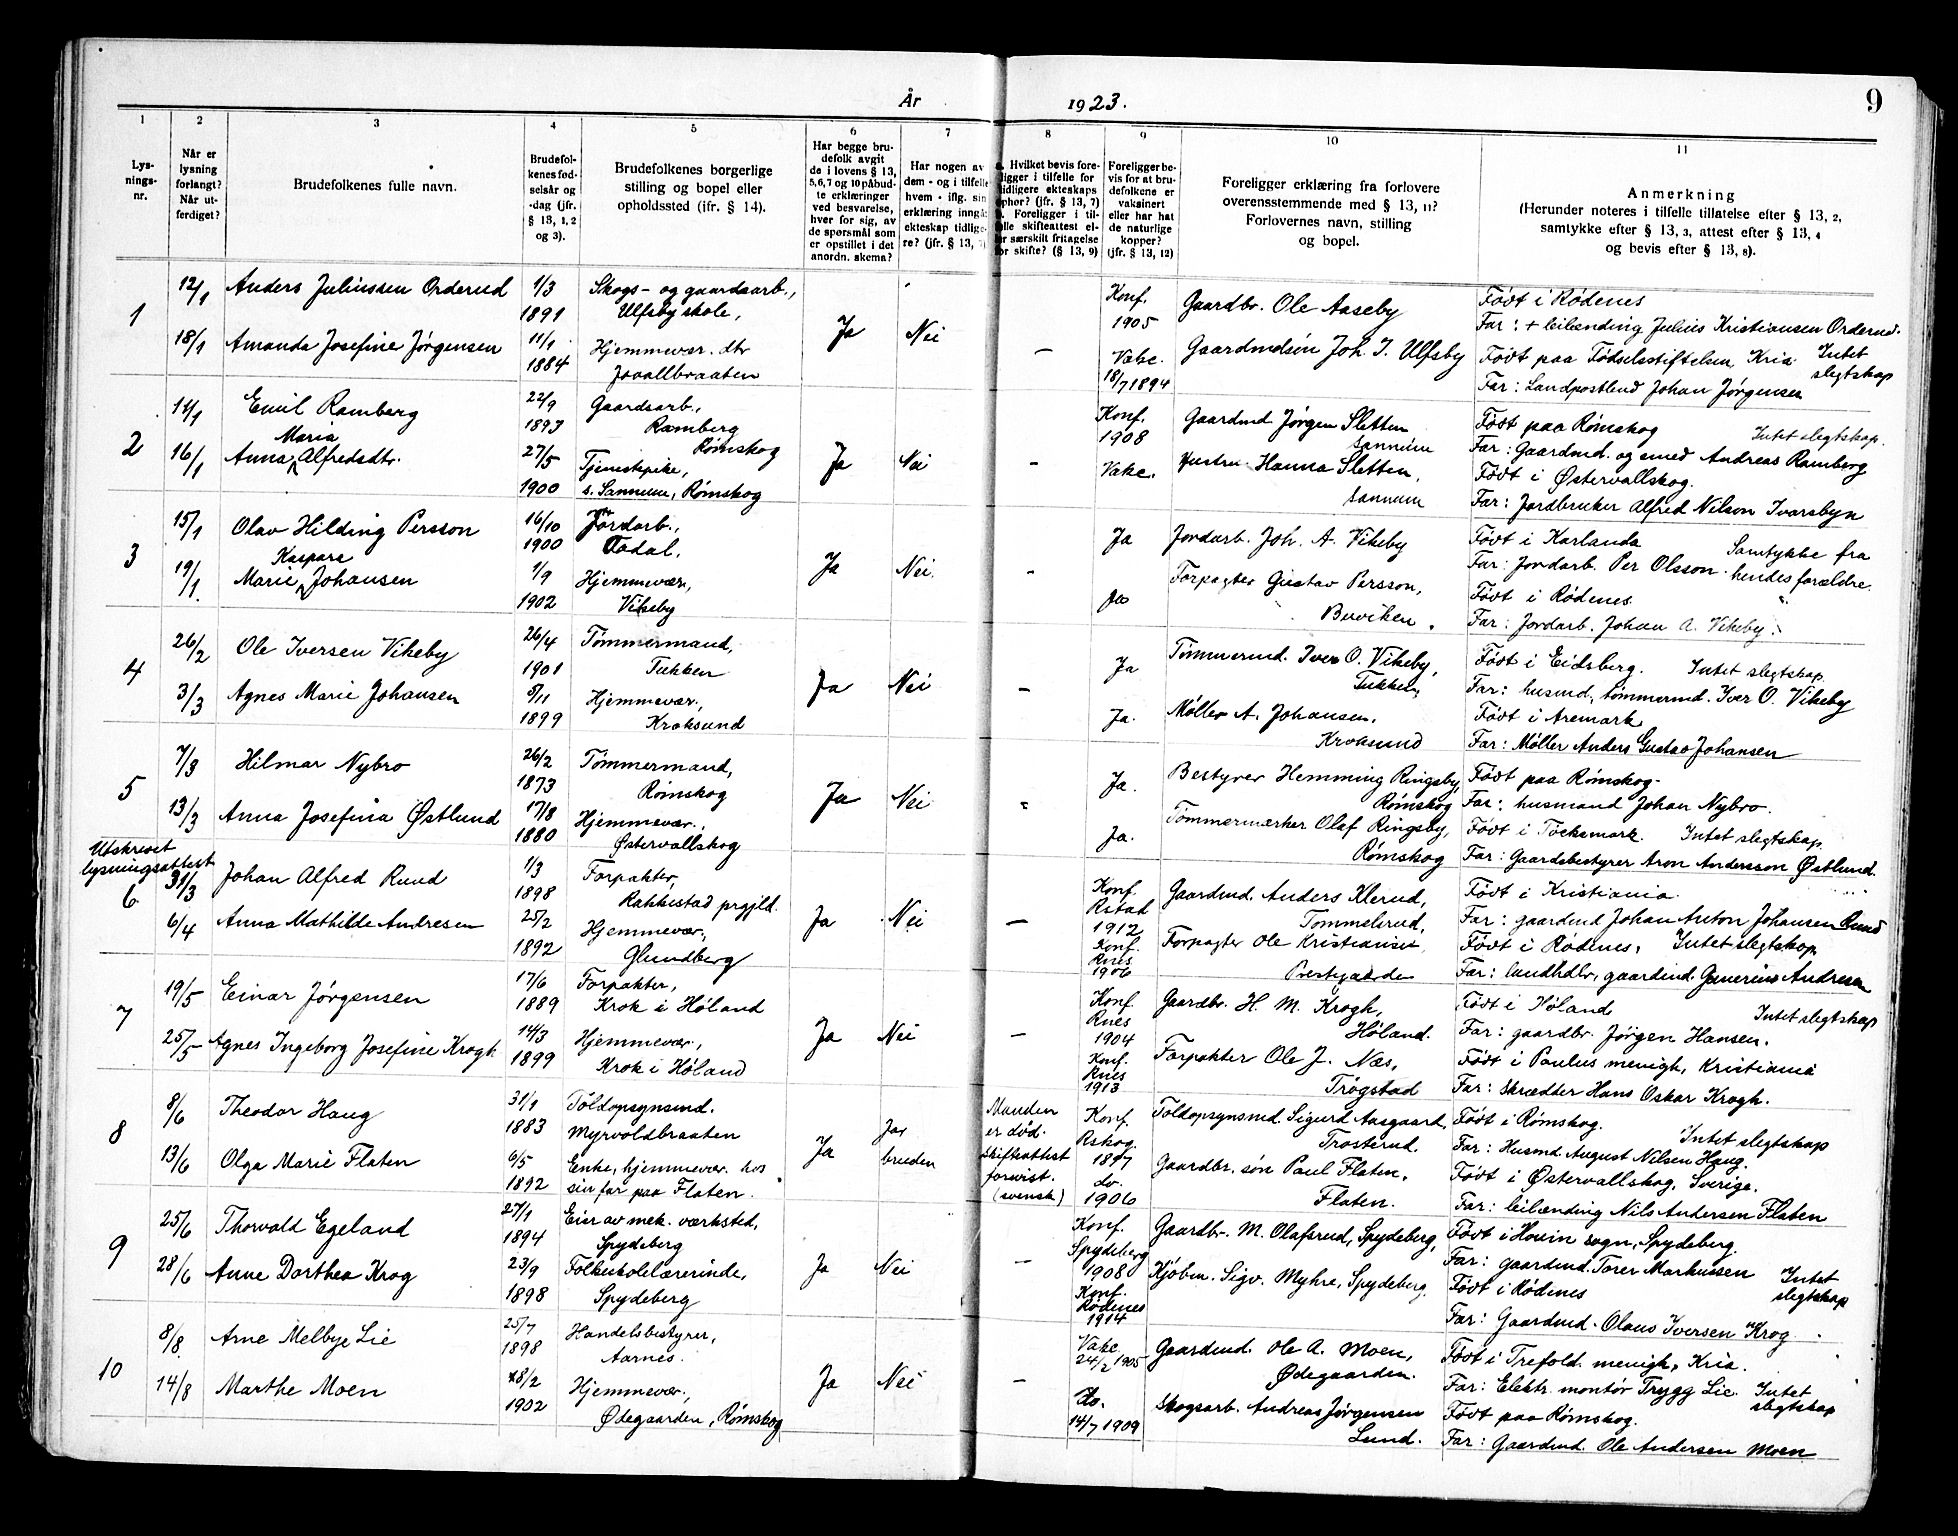 År
1923.
9
1
2
3
4
5
6
7
8
9
10
11
Lys-
nings-
nr.
Når er
lysning
forlangt?
Når ut-
ferdiget?
Brudefolkenes fulle navn.
Brudefol-
kenes fød-
selsår og
-dag (jfr.
§ 13, 1, 2
og 3).
Brudefolkenes borgerlige
stilling og bopel eller
opholdssted (ifr. § 14).
Har begge bru-
defolk avgit
de i lovens § 13,
5,6,7 og 10 påbud-
te erklæringer
ved besvarelse,
hver for sig, av
de spørsmål som
er opstillet i det
anordn. skema?
Har nogen av
dem - og i tilfelle
hvem - iflg. sin
erklæring inngå
ekteskap tidlige-
re? (jfr. § 13, 7)
a. Hvilket bevis fore-
ligger i tilfelle for
tidligere ekteskaps
ophør? (jfr. § 13, 7)
b. Foreligger i til-
felle skifteattest el-
ler særskilt fritagelse
for skifte? (§ 13, 9)
Foreligger be-
vis for at bru-
defolkene er
vaksinert
eller har hat
de naturlige
kopper?
(jfr. § 13, 12)
Foreligger erklæring fra forlovere
overensstemmende med § 13, 11?
Forlovernes navn, stilling
og bopel.
Anmerkning
(Herunder noteres i tilfelle tillatelse efter § 13, 2,
samtykke efter § 13, 3, attest efter § 13, 4
og bevis efter § 13, 8).
1
12/1 Anders Juliussen Orderud 1/3 1891 Skogs- og gaardsarb.,
Ulfsby skole,
Ja Nei —
Konf. 1905 Gaardbr. Ole Aaseby
Født i Rødenes
Far: + leilending Julius Kristiansen Orderud.
18/1 Amanda Josefine Jørgensen 11/1 1884 Hjemmevær. dtr
Jaavallbraaten
Vakc. 18/7 1894 Gaardmdsøn Joh. I. Ulfsby
Født paa Fødselsstiftelsen, Kria. Intet
slegtskap
Far: Landpostbud Johan Jørgensen
2
14/1 Emil Ramberg 22/9 1893 Gaardsarb.,
Ramberg
Rømskog
Ja Nei —
Konf. 1908 Gaardmd Jørgen Sletten
Sannum
Født paa Rømskog Intet slegtskap.
Far: Gaardmd. og smed Andreas Ramberg
16/1 Anna Maria Alfredsdtr. 27/5 1900 Tjenestepike,
s. Sannum, Rømskog
Vakc. Hustru Hanna Sletten,
Sannum
Født i Østervallskog.
Far: Jordbruker Alfred Nilson Ivarsbyn
3
15/1 Olav Hilding Persson 16/10 1900 Jordarb.,
Tadal,
Ja Nei. -
Ja Jordarb. Joh. A. Vikeby
Født i Karlanda Samtykke fra
Far: Jordarb. Per Olsson. hendes forældre.
19/1. Marie Kaspara Johansen 1/9 1902 Hjemmevær,
Vikeby
Ja Forpagter Gustav Persson,
Buviken.
Født i Rødenes.
Far: Jordarb. Johan A. Vikeby.
4
26/2 Ole Iversen Vikeby 26/4 1901 Tømmermand,
Tukken
Ja Nei —
Ja Tømmermd. Iver O. Vikeby,
Tukken,
Født i Eidsberg. Intet slegtskap.
Far: husmd, tømmermd. Iver O. Vikeby
3/3 Agnes Marie Johansen 5/11 1899 Hjemmevær.,
Kroksund
Ja. Møller A. Johansen.
Kroksund
Født i Aremark
Far: Møller Anders Gustav Johansen
5
7/3 Hilmar Nybro 26/2 1873 Tømmermand,
Rømskog
Ja Nei -
Ja. Bestyrer Hemming Ringsby,
Rømskog
Født paa Rømskog-
Far: husmand Johan Nybro.
13/3 Anna Josefina Østlund 17/8 1880 Hjemmevær.,
Østervallskog
Ja. Tømmermærker Olaf Ringsby,
Rømskog
Født i Töcksmark. Intet slegtskap.
Far: Gaardsbestyrer Aron Andersson Østlund.
Utskrevet
lysningsattest
6
31/3 Johan Alfred Ruud 1/3 1898 Forpakter,
Rakkestad prgjld.
Ja Nei —
Konf Rstad 1912 Gaardmd. Anders Klerud,
Tommelsrud,
Født i Kristiania.
Far: gaardmd Johan Anton Johansen Ruud
6/4 Anna Mathilde Andresen 25/2 1892 Hjemmevær,
Glundberg
Konf. Rnes 1906 Forpagter Ole Kristiansen,
Prestgaarde
Født i Rødenes, Intet slegtskap
Far: landhdlr, gaardmd. Andresen
7
19/5 Einar Jørgensen 17/6 1889 Forpakter,
Krok i Høland
Ja Nei —
Konf Rnes 1904 Gaardbr. H. M. Krogh,
Høland.
Født i Høland Intet slegtskap
Far: gaardbr. Jørgen Hansen.
25/5 Agnes Ingeborg Josefine Krogh 14/3 1899 Hjemmevær.,
Krok i Høland
Konf. Rnes 1913 Forpakter Ole J. Næs,
Trøgstad
Født i Paulus menigh, Kristiania
Far: Skrædder Hans Oskar Krogh.
8
8/6 Theodor Haug 31/1 1883 Toldopsynsmd.
Myrvoldbraaten
Ja Jar
bruden
Manden
er død.
Skifteattest
forevist.
(svensk)
Konf. Rskog. 1897 Toldopsynsmd. Sigurd Aasgaard,
Trosterud.
Født i Rømskog. Intet slegtskap
Far: Husmd August Nilsen Haug.
13/6 Olga Marie Flaten 6/5 1892 Enke, hjemmevær. hos
sin far paa Flaten.
do. 1906 Gaardbr. søn Paul Flaten,
Flaten.
Født i Østervallskog, Sverige.
Far: leilænding Nils Andersen Flaten
9
25/6 Thorvald Egeland 27/1 1894 Eier av mek. værksted,
Spydeberg
Ja Nei —
Konf. Spydeberg 1908 Gaardbr. M. Olafsrud, Spydeberg,
Født i Hovin sogn, Spydeberg.
Far: gaardmd. Torer Markussen Intet
slegtskap
28/6 Anne Dorthea Krog 23/9 1898 Folkeskolelærerinde,
Spydeberg
Konf. Rødenes 1914 Kjøbm. Sigv. Myhre, Spydeberg.
Født i Rødenes
Far: Gaardmd. Olaus Iversen Krog
10
8/8. Arne Melbye Lie 25/7 1898 Handelsbestyrer,
Aarnes.
Ja Nei —
Vakc 24/2 1905 Gaardmd. Ole A. Moen,
Ødegaarden.
Født i Trefold. menigh, Kria.
Far: Elektr. montør Trygg Lie. Intet
slegtskap
14/8 Marthe Moen 8/2 1902 Hjemmevær.,
Ødegaarden, Rømskog
do. 14/7 1909 Skogsarb. Andreas Jørgensen
Lund.
Født paa Rømskog.
Far: Gaardmd. Ole Andersen Moen